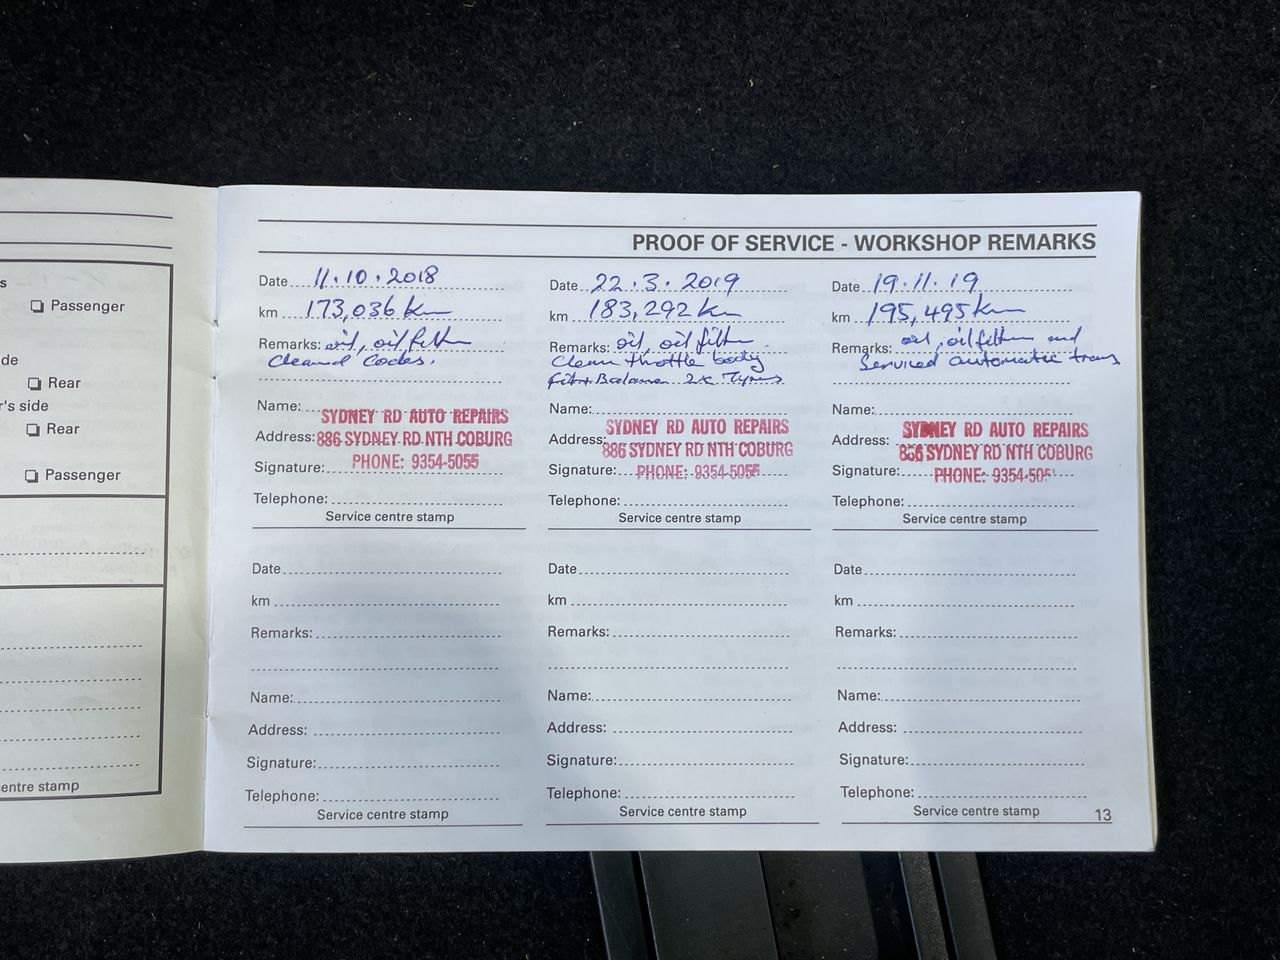 s
Passenger
de
Rear
r's side
Rear
Passenger
entre stamp
PROOF OF SERVICE - WORKSHOP REMARKS
Date 11.10.2018
km 173,036 km
Remarks: oil, oil filter
Cleared Codes.
Name:
SYDNEY RD AUTO REPAIRS
Address: 886 SYDNEY RD NTH COBURG
Signature: PHONE: 9354-5055
Telephone:
Service centre stamp
Date 22.3.2019
km 183,292 km
Remarks: oil, oil filter
Clean throttle body
fit + Balance 2x Tyres
Name:
SYDNEY RD AUTO REPAIRS
Address: 886 SYDNEY RD NTH COBURG
Signature: PHONE: 9354-5055
Telephone:
Service centre stamp
Date 19.11.19
km 195,495 km
Remarks: oil, oil filter and
Serviced automatic trans
Name:
SYDNEY RD AUTO REPAIRS
Address: 886 SYDNEY RD NTH COBURG
Signature: PHONE: 9354-505
Telephone:
Service centre stamp
Date
km
Remarks:
Name:
Address:
Signature:
Telephone:
Service centre stamp
Date
km
Remarks:
Name:
Address:
Signature:
Telephone:
Service centre stamp
Date
km
Remarks:
Name:
Address:
Signature:
Telephone:
Service centre stamp
13